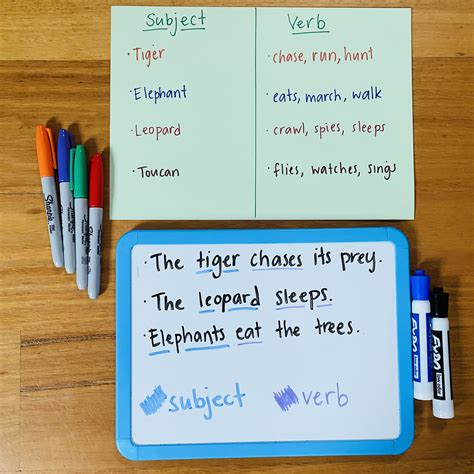 Subject Verb
· Tiger · chase, run, hunt
· Elephant · eats, march, walk
· Leopard · crawl, spies, sleeps
· Toucan · flies, watches, sings
Sharpie
· The tiger chases its prey.
· The leopard sleeps.
· Elephants eat the trees.
subject verb
EXPO
EXPO